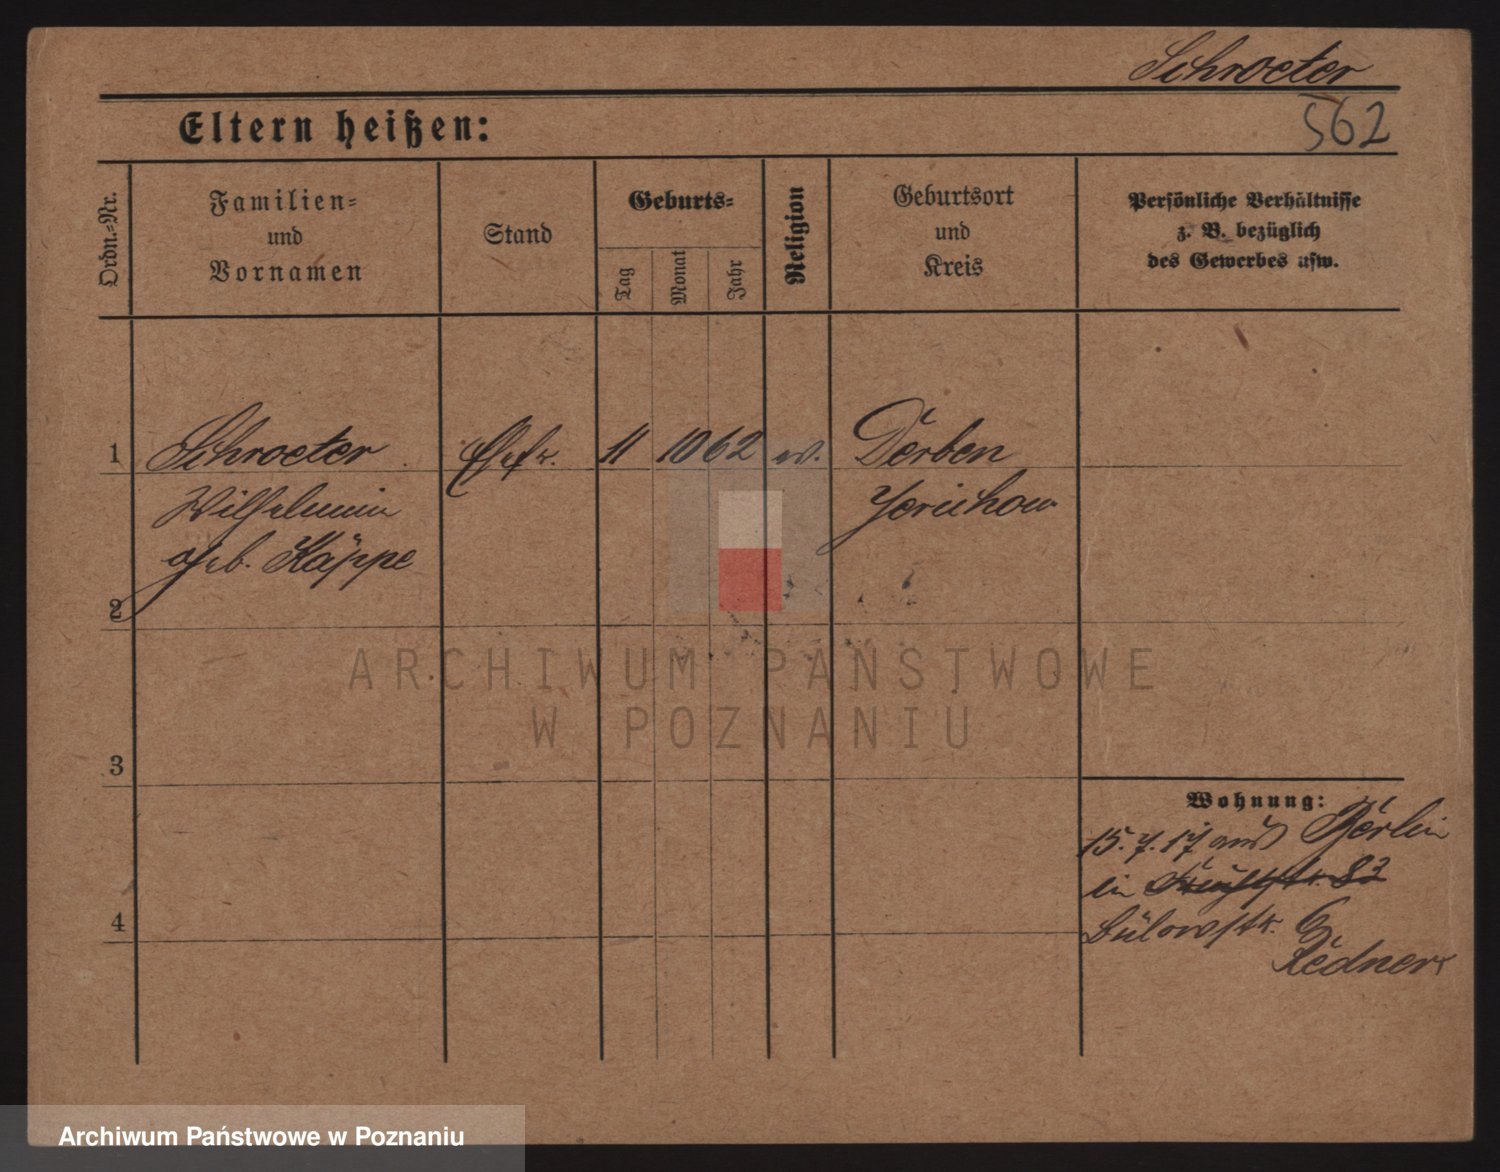 Schroeter
Eltern heißen:
562
Ordn.-Nr.
Familien-
und
Vornamen
Stand
Geburts-
Tag
Monat
Jahr
Religion
Geburtsort
und
Kreis
Persönliche Verhältnisse
z. B. bezüglich
des Gewerbes usw.
1 Schroeter Ehefr. 11 10 62 ev. Derben
Wilhelmine Jerichow
geb. Käppe
2
ARCHIWUM PAŃSTWOWE
W POZNANIU
3
Wohnung:
15. 7. 17 aus Berlin
in 83
4
Bülowstr. 6
Redner
Archiwum Państwowe w Poznaniu